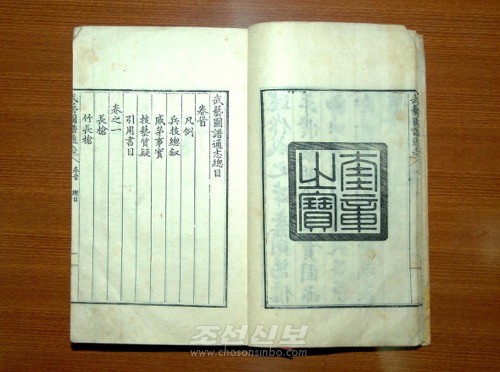 奎章
之寶
武藝圖譜通志總目
卷首
凡例
兵技總叙
戚茅事實
技藝質疑
引用書目
卷之一
長槍
竹長槍
武藝圖譜通志 卷首 總目 一
조선신보
www.chosonsinbo.com